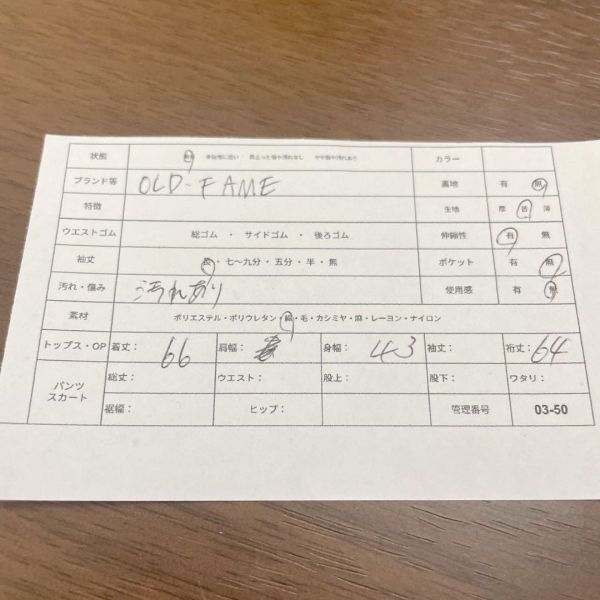 状態 新品 未使用に近い 目立った傷や汚れなし やや傷や汚れあり カラー
ブランド等 OLD-FAME 裏地 有 無
特徴 生地 厚 普 薄
ウエストゴム 総ゴム ・ サイドゴム ・ 後ろゴム 伸縮性 有 無
袖丈 長・七〜九分・五分・半・無 ポケット 有 無
汚れ・傷み 汚れあり 使用感 有 無
素材 ポリエステル・ポリウレタン 綿・毛・カシミヤ・麻・レーヨン・ナイロン
トップス・OP 着丈: 66 肩幅: 身幅: 43 袖丈: 裄丈: 64
パンツ スカート 総丈: ウエスト: 股上: 股下: ワタリ:
裾幅: ヒップ: 管理番号 03-50